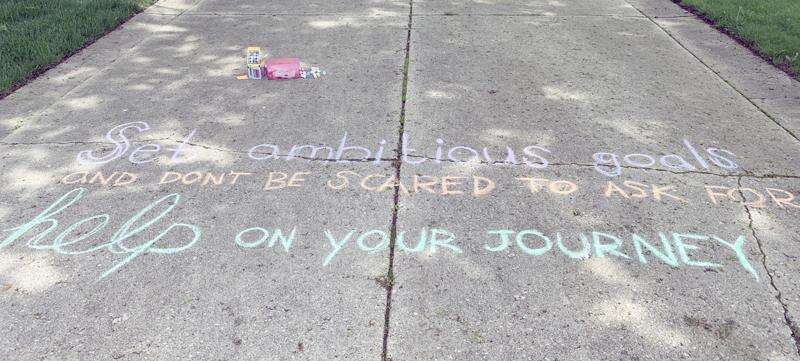 Set ambitious goals
AND DONT BE SCARED TO ASK FOR
help ON YOUR JOURNEY